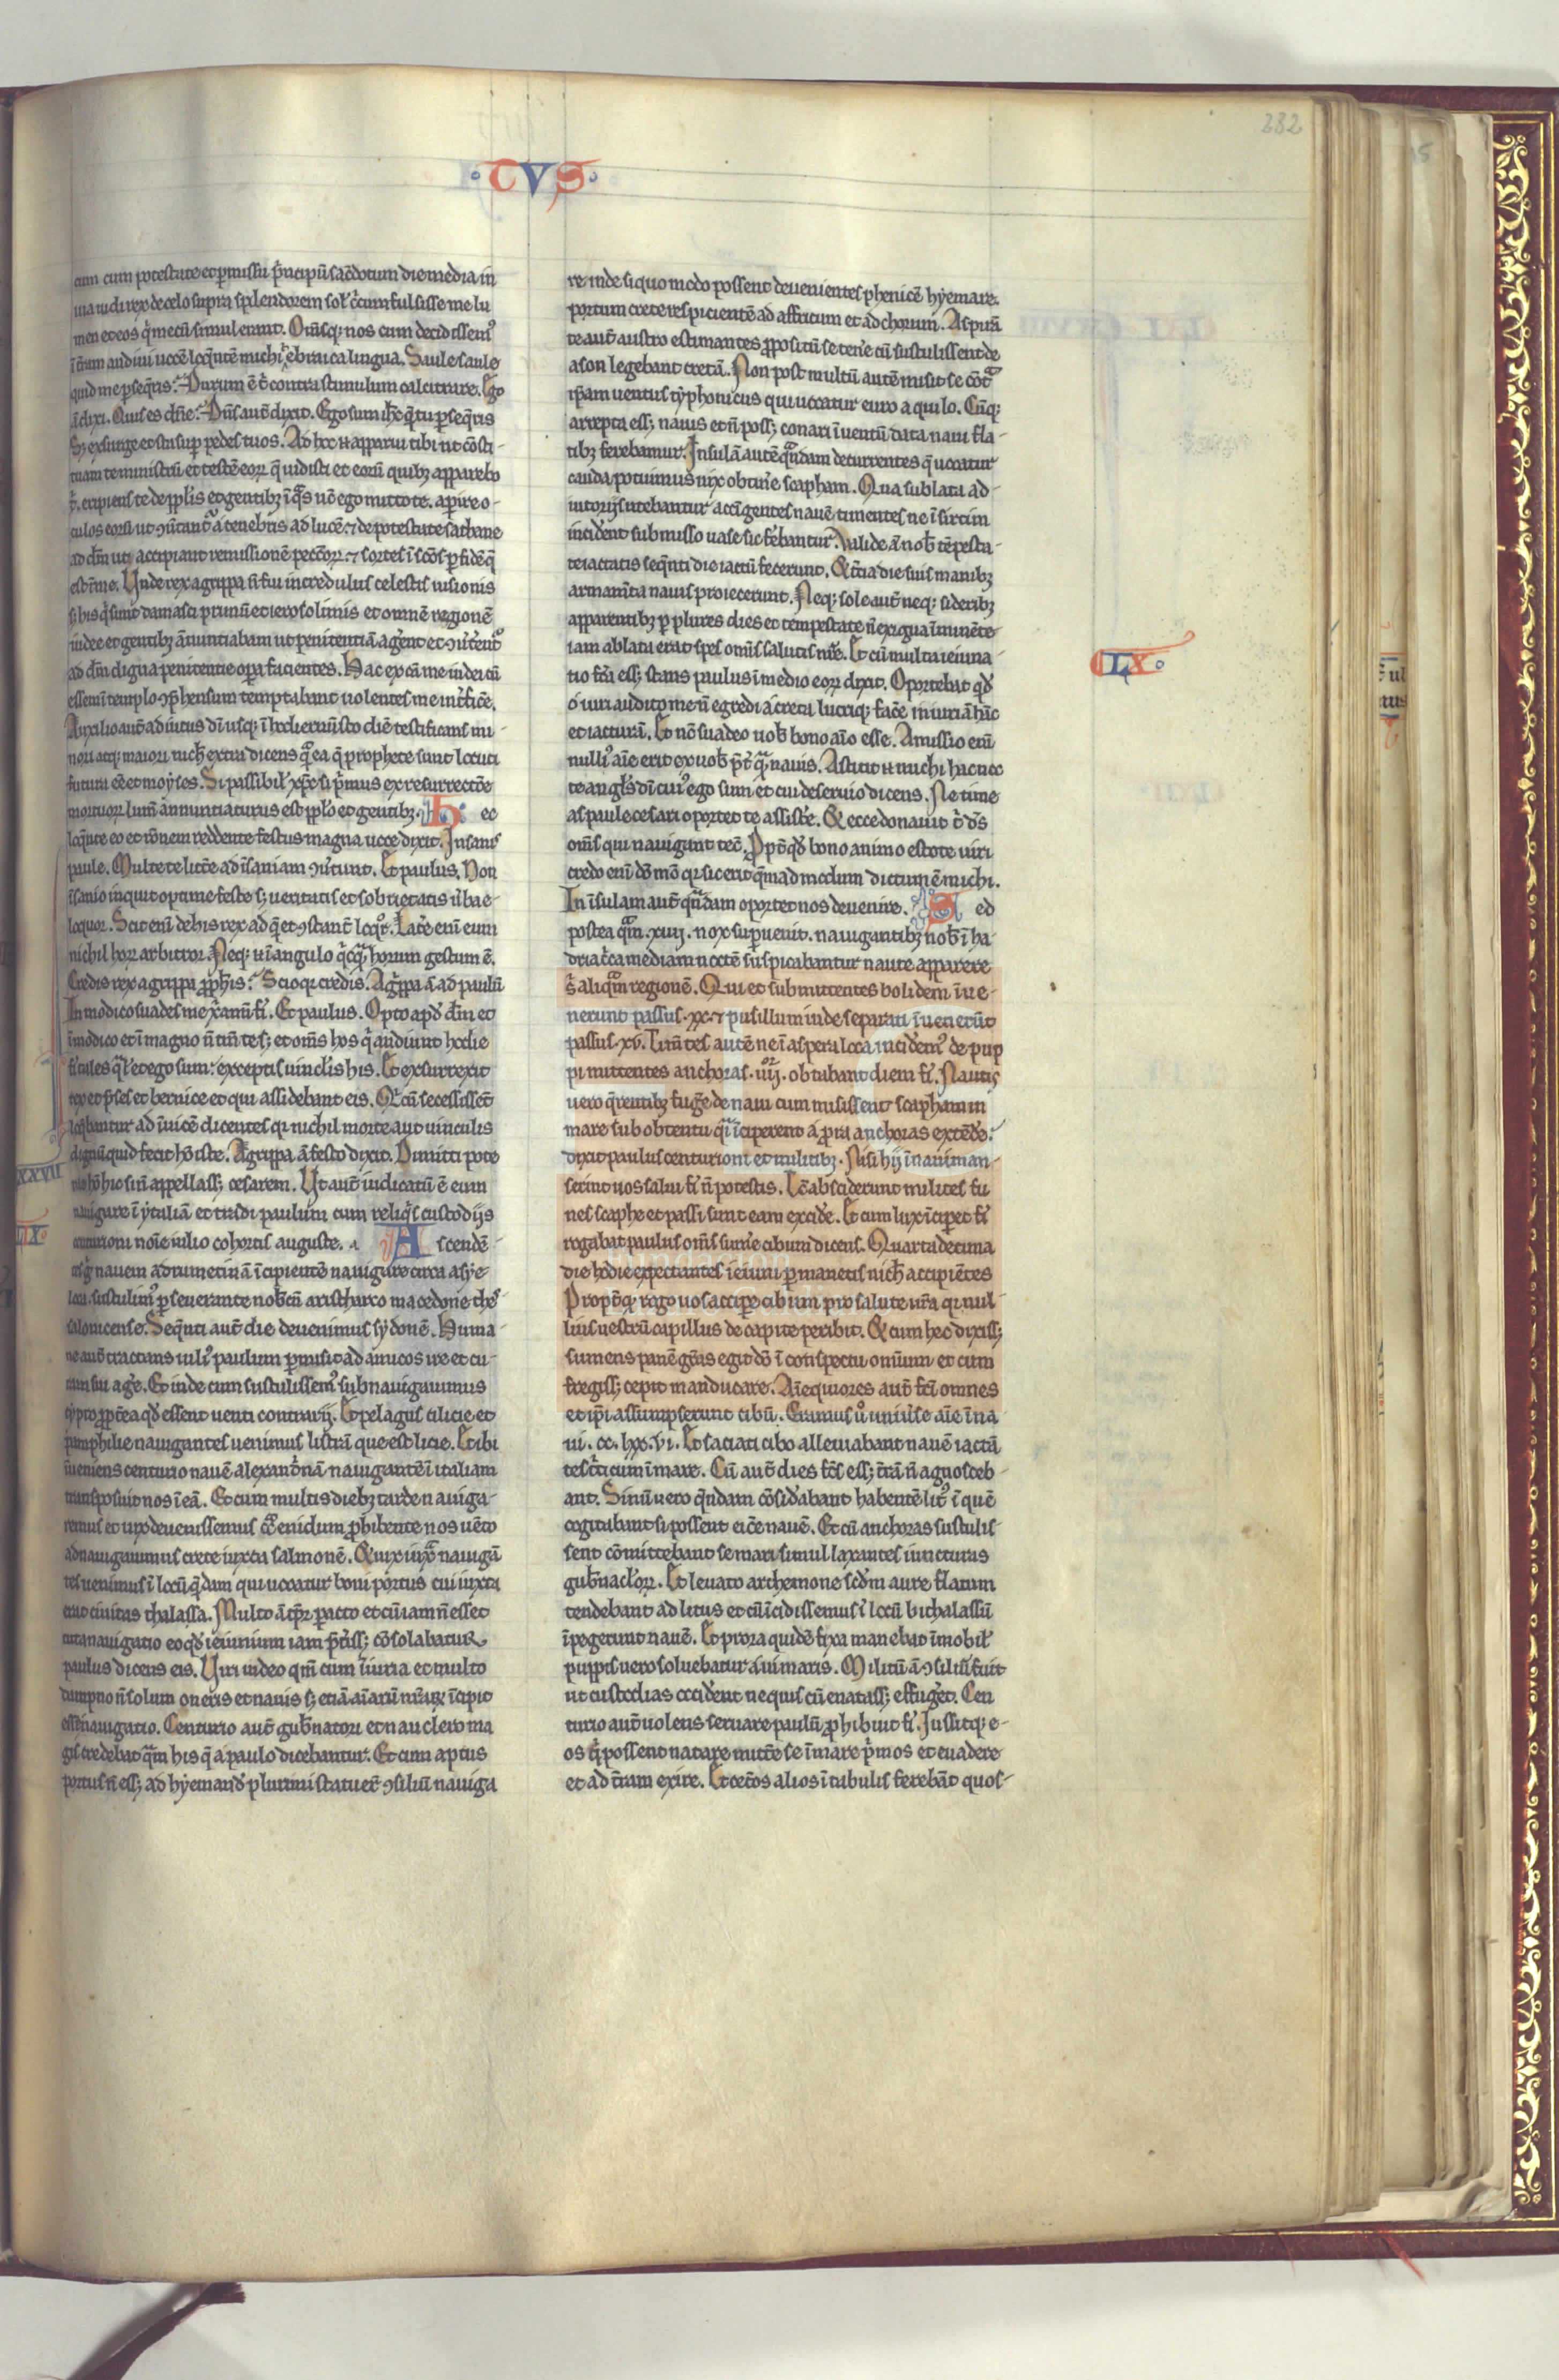 232
·CVS·
cum cum potestate et ꝑmissu p̉ncipū sac̉dotum die media in
uia uidi rex de celo supra splendorem sol̉ c̉cumfulsisse me lu
men et eos q̉ mecū simul erant. Om̄sqꝫ nos cum decidissem᷒
ī t̉ram audiui uocē loq̄ntē michi ebraica lingua. Saule saule
quid me ꝑseq̉ris. Durum ē t̉ contra stimulum calcitrare. Ego
aū dixi. Quis es dn̄e. Dn̄s aut̄ dixit. Ego sum ih̄c q̄ tu ꝑseq̉ris
Sꝫ exsurge et sta suꝑ pedes tuos. Ad hoc n̄ apparui tibi ut cōsti
tuam te ministrū et testē eoꝝ q̄ uidisti et eorū quibꝫ apparebo
t̉. eripiens te de ppl̉is et gentibꝫ ī q̄s nc̄ ego mitto te. aperire o-
culos eoꝝ ut ꝯủtant̉ a tenebris ad lucē ⁊ de potestate sathane
ad dm̄ ut accipiant remissionē pecc̄oꝝ ⁊ sortes ī sc̄os ꝑ fidē q̄
est ī me. Unde rex agrippa n̄ fui incredulus celestis uisionis
sꝫ his q̉ sunt damasci primū et ierosolimis et omnē regionē
iudee et gentibꝫ ānuntiabam ut penitentiā ag̉ent et ꝯủtent᷒
ad dm̄ digna penitentie oꝑa facientes. Hac ex cā me iudei cū
essem ī templo ꝯp̉hensum temptabant uolentes me int̉fic̉e.
Auxilio aut̄ adiutus dī usqꝫ ī hodiernū sto diē testificans mi-
nori atqꝫ maiori nich̉ extra dicens q̄ ea q̄ prophete sunt locuti
futura eē et moyses. Si passibil̉ xp̄c si p̉mus ex resurrectōe
mortuoꝝ lum̄ annuntiaturus est ppl̉o et gentibꝫ. h ec
loq̄nte eo et rōnem reddente festus magna uoce dixit. Insanis
paule. Multe te litt̉e ad īsaniam ꝯủtunt. Et paulus. Non
īsanio inquit optime feste sꝫ ueritatis et sobrietatis ủba e-
loquor. Scit enī de his rex ad q̄ et ꝯstant̉ loq̄r. Lat̉e enī eum
nichil horꝝ arbitror. Neqꝫ n̄ ī angulo q̉cq̄ horum gestum ē.
Credis rex agrippa ꝓph̉is. Scio qꝛ credis. Agrippa ā ad paulū
In modico suades me x̉anū fỉ. Et paulus. Opto apd̉ dm̄ et
ī modico et ī magno n̄ tm̄ te sꝫ et om̄s hos q̉ audiunt hodie
fỉ tales q̄l̉ et ego sum exceptis uinc̉lis his. Et exsurrexit
rex et p̉ses et bernice et qui assidebant eis. Et cū secessissēt
loq̄bantur ad īuicē dicentes qꝛ nichil morte aut uinculis
dignū quid fecit hō iste. Agrippa ā festo dixit. Dimitti pote
rat hō hic si n̄ appellassꝫ cesarem. Ut aut̄ iudicatū ē eum
XXVII
nauigare ī ytaliā et tradi paulum cum reliq̉s custodiis
LIX.
centurioni noīe iulio cohortis auguste. A scendē-
tes g̉ nauem adrumetinā īcipientē nauigare circa asye
loca sustulim᷒ ꝑseuerante nob̉cū aristharco macedone thẻs
salonicense. Seq̄nti aut̄ die deuenimus sydonē. Huma-
ne aut̄ tractans iuli᷒ paulum ꝑmisit ad amicos ire et cu-
ram sui ag̉e. Et inde cum sustulissem᷒ subnauigauimus
cypro ꝓpt̉ea qd̉ essent uenti contrarij. Et pelagus cilicie et
pamphilie nauigantes uenimus listrā que est licie. Et ibi
īueniens centurio nauē alexandrinā nauigantē ī italiam
transposuit nos ī eā. Et cum multis diebꝫ tarde nauiga-
remus et uix deuenissemus cͣ enidum ꝓhibente nos uēto
adnauigauimus crete iuxta salmonē. Et uix iuxͣ nauigā
tes uenimus ī locū q̄ndam qui uocatur boni portus cui iuxta
erat ciuitas thalassa. Multo ā tp̄r peracto et cū iam n̄ esset
tuta nauigatio eo qd̉ ieiunium iam p̄t̉issꝫ cōsolabatur
paulus dicens eis. Uiri uideo qm̄ cum īiuria et multo
dampno n̄ solum oneris et nauis sꝫ etiā aīarū nr̄arꝝ īcipit
esse nauigatio. Centurio aut̄ gub̉natori et nauclero ma
gis credebat q̄m his q̄ a paulo dicebantur. Et cum aptus
portus n̄ essꝫ ad hyemand̉ plurimi statuer̄t ꝯsiliū nauiga
re inde si quomodo possent deuenientes phenicē hyemare
portum crete respicientē ad affricum et ad chorum. Aspirā
te aut̄ austro estimantes ꝓpositū se ten̉e cū sustulissent de
ason legebant cretā. Non post multū autē misit se cōtͣ
ip̄am uentus typhonicus qui uocatur euro aquilo. Cūqꝫ
arrepta essꝫ nauis et n̄ possꝫ conari ī uentū data naui fla-
tibꝫ ferebamur. Insulā autē q̄ndam decurrentes q̄ uocatur
cauda potuimus uix obtin̉e scapham. Qua sublata ad-
iutoriis utebantur accīgentes nauē timentes ne ī sirtim
incident submisso uase sic fẻbantur. Ualide ā nob̉ tēpesta-
te iactatis seq̄nti die iactū fecerunt. Et t̉cia die suis manibꝫ
armam̄ta nauis proiecerunt. Neqꝫ sole aut̄ neqꝫ sideribꝫ
apparentibꝫ ꝑ plures dies et tempestate n̄ exigua īminēte
iam ablata erat spes om̄is salutis nr̄e. Et cū multa ieiuna-
LX.
tio fc̄a essꝫ stans paulus ī medio eoꝝ dixit. Oportebat qd̉
o uiri audito me n̄ egredi a creta lucriqꝫ fac̉e iniuriā hāc
et iacturā. Et nc̄ suadeo uob̉ bono aīo esse. Amissio enī
nulli᷒ aīe erit ex uob̉ p̄t̉ q̄m nauis. Astitit n̄ michi hac noc
te angl̉s dī cui᷒ ego sum et cui deseruio dicens. Ne time
as paule cesari oportet te assist̉e. Et ecce donauit t̉ ds̄
om̄s qui nauigant tec̄. Ꝓpt̉ qd̉ bono animo estote uiri
credo enī dō mō qꝛ sic erit q̄madmodum dictum ē michi.
In īsulam aut̄ q̄ndam oportet nos deuenire. S ed
postea q̄m .xiiij. nox suꝑuenit. nauigantibꝫ nob̉ ī ha-
dria c̉ca mediam noctē suspicabantur naute apparere
s̉ aliq̄m regionē. Qui et submittentes bolidem īue-
nerunt passus .xx. ⁊ pusillum inde separati īuenerūt
passus .xv. Tim̄tes autē ne ī aspera loca incidem᷒ de pup
pi mittentes anchoras .iiijor. obtabant diem fỉ. Nautis
uero q̄rentibꝫ fug̉e de naui cum misissent scapham in
mare sub obtentu q̄si īciperent a ꝓra anchoras extēd̉e.
dixit paulus centurioni et militibꝫ. Nisi hij ī naui man-
serint uos salui fỉ n̄ potestis. Tc̄ absciderunt milites fu
nes scaphe et passi sunt eam excid̉e. Et cum lux īcip̉et fỉ
rogabat paulus om̄s sum̉e cibum dicens. Quarta decima
die hodie expectantes ieiuni ꝑmanetis nich̉ accipiētes
Propt̉ qꝫ rogo uos accip̉e cibum pro salute ur̄a qꝛ nul-
lius uestrū capillus de capite peribit. Et cum hec dixissꝫ
sumens panē gr̄as egit dō ī conspectu omium et cum
fregissꝫ cepit manducare. Aīequiores aut̄ fc̄i omnes
et ip̄i assumpserunt cibū. Eramus u᷒ uniủse aīe ī na
ui .cc. lxx.vi. Et saciati cibo alleuiabant nauē iactā
tes t̉ticum ī mare. Cū aut̄ dies fc̄s essꝫ t̉rā n̄ agnosceb-
ant. Sinū uero q̄ndam cōsid̉abant habentē lit᷒ ī quē
cogitabant si possent eic̉e nauē. Et cū anchoras sustulis-
sent cōmittebant se mari simul laxantes iuncturas
gub̉nac̉loꝝ. Et leuato archemone sc̄dm aure flatum
tendebant ad litus et cū īcidissemus ī locū bithalassū
īpegerunt nauē. Et prora quidē fixa manebat īmobil̉
puppis uero soluebatur a ui maris. Militū ā ꝯsiliū fuit
ut custodias occid̉ent ne quis cū enatassꝫ effug̉et. Cen
turio aut̄ uolens seruare paulū ꝓhibuit fỉ. Iussitqꝫ e-
os q̉ possent natare mitt̉e se ī mare p̉mos et euadere
et ad t̉ram exire. Et cet̉os alios ī tabulis ferebāt quos-